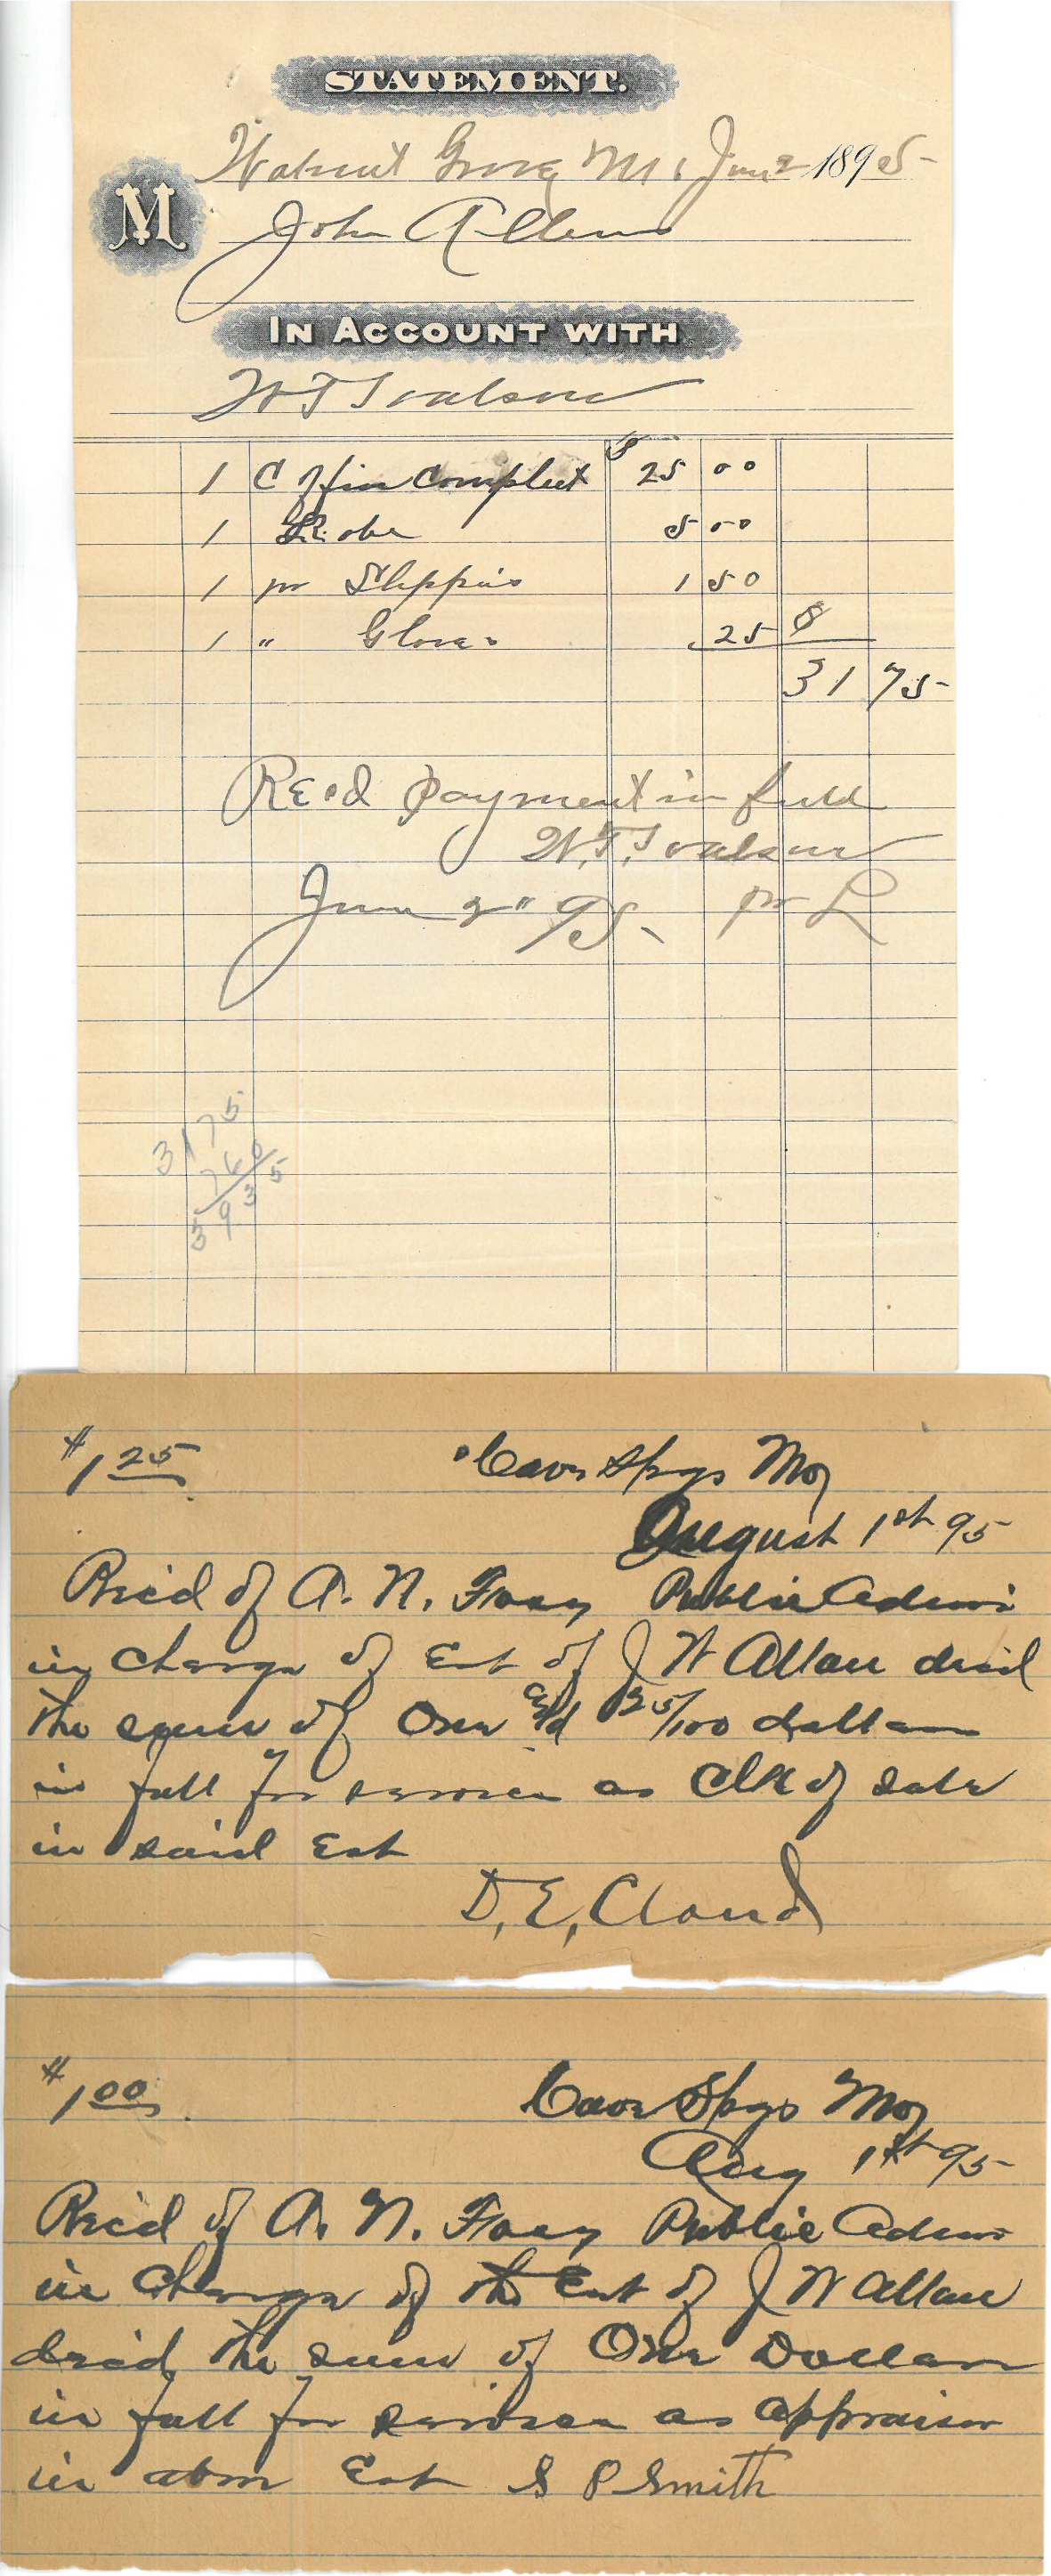 STATEMENT.
Walnut Grove M. June 2 1895
M
John Allen
IN ACCOUNT WITH
W T
1 Coffin Compleet $ 25 00
1 Robe 5 00
1 pr Slippirs 1 50
1 " Gloves 25 $
31 75
Recd payment in full
W. T.
June 2" 95. pr L
3175
760
3935
$1 25
Cave Spgs Mo
August 1st 95
Rec'd of A. N. Public Admi
in charge of Est of J W Allan decd
the sum of One & 25/100 dollars
in full for services as Clk of sale
in said Est
D. E. Cloud
$1 00
Cave Spgs Mo
Aug 1st 95
Rec'd of A. N. Public Admi
in charge of the Est of J W Allan
decd, the sum of One Dollar
in full for services as appraiser
in abov Est S P Smith